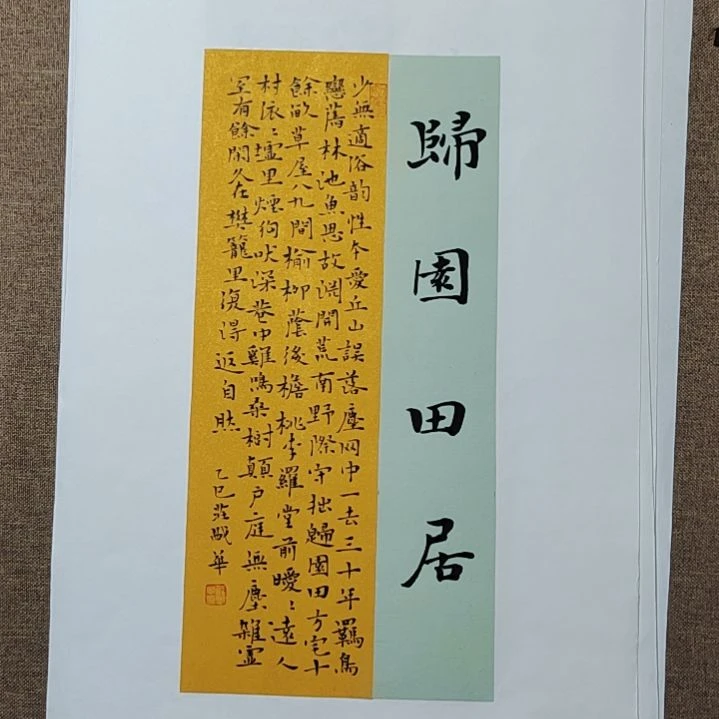 歸園田居
少無適俗韵性本愛丘山誤落塵网中一去三十年羈鳥
戀舊林池魚思故渊開荒南野際守拙歸園田方宅十
餘畝草屋八九間榆柳蔭後檐桃李羅堂前曖〻遠人
村依〻墟里煙狗吠深巷中雞鳴桑樹顛户庭無塵雜虛
室有餘閑久在樊籠里復得返自然
乙巳莊 華